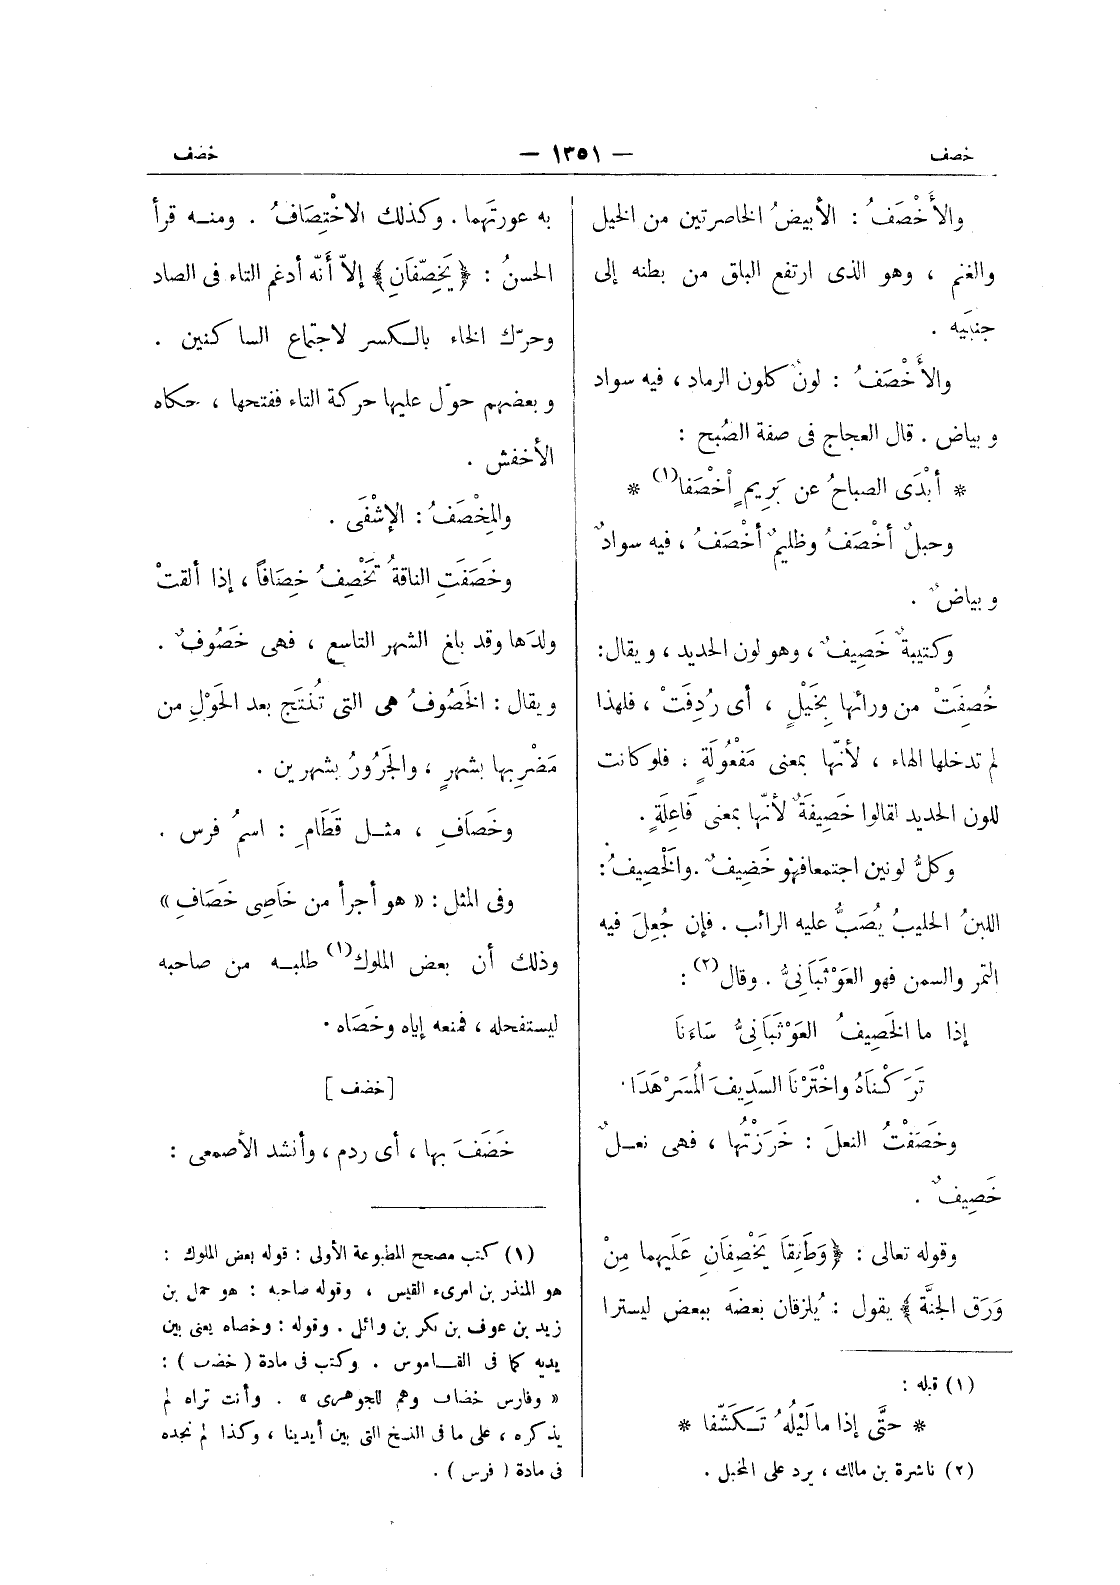 خصف
— ١٣٥١ —
خضف
والأَخْصَفُ : الأبيضُ الخاصرتين من الخيل
والغنم ، وهو الذى ارتفع البلق من بطنه إلى
جنبَيه .
والأَخْصَفُ : لونٌ كلون الرماد ، فيه سواد
وبياض . قال العجاج فى صفة الصُبح :
* أبْدَى الصباحُ عن بَرِيمٍ أخْصَفا(١) *
وحبلٌ أخْصَفُ وظليمٌ أخْصَفُ ، فيه سوادٌ
وبياضٌ .
وكتيبةٌ خَصِيفٌ ، وهو لون الحديد ، ويقال:
خُصِفَتْ من ورائها بِخَيْلٍ ، أى رُدِفَتْ ، فلهذا
لم تدخلها الهاء ، لأنّها بمعنى مَفْعُولَةٍ . فلو كانت
للون الحديد لقالوا خَصِيفَةٌ لأنّها بمعنى فَاعِلَةٍ .
وكلُّ لونين اجتمعا فهو خَصِيفٌ . والخَصِيفُ :
اللبنُ الحليبُ يُصَبُّ عليه الرائب . فإن جُعِلَ فيه
التمر والسمن فهو العَوْثَبَانِىُّ . وقال(٢) :
إذا ما الخَصِيفُ العَوْثَبَانِىُّ سَاءَنَا
تَرَكْنَاهُ واخْتَرْنَا السَدِيفَ المُسَرْهَدَا.
وخَصَفْتُ النعلَ : خَرَزْتُها ، فهى نعـلٌ
خَصِيفٌ .
وقوله تعالى : ﴿وَطَفِقَا يَخْصِفَانِ عَلَيهما مِنْ
وَرَق الجنَّة﴾ يقول : يُلزقان بَعضَه ببعض ليسترا
(١) قبله :
* حتَّى إذا ما لَيْلُهُ تَـكَشَّفا *
(٢) ناشرة بن مالك ، يرد على المخبل .
به عورتَهما . وكذلك الاخْتِصَافُ . ومنـه قرأ
الحسنُ : ﴿يَخِصِّفَانِ﴾ إلاّ أَنّه أدغم التاء فى الصاد
وحرّك الخاء بالـكسر لاجتماع الساكنين .
وبعضهم حوّل عليها حركة التاء ففتحها ، حكاه
الأخفش .
والمِخْصَفُ : الإشْفَى .
وخَصَفَتِ الناقةُ تَخْصِفُ خِصَافاً ، إذا ألقتْ
ولدَها وقد بلغ الشهر التاسع ، فهى خَصُوفٌ .
ويقال : الخَصُوفُ هى التى تُنْتَج بعد الحَوْلِ من
مَضْرِبها بشهرٍ ، والجَرُورُ بشهرين .
وخَصَافِ ، مثـل قَطَامِ : اسمُ فرس .
وفى المثل : « هو أجرأ من خَاصِى خَصَافِ »
وذلك أن بعض الملوك(١) طلبـه من صاحبه
ليستفحله ، فمنعه إياه وخَصَاه .
[ خضف ]
خَضَفَ بها ، أى ردم ، وأنشد الأصمعى :
(١) كتب مصحح المطبوعة الأولى : قوله بعض الملوك :
هو المنذر بن امرىء القيس ، وقوله صاحبه : هو حمل بن
زيد بن عوف بن بكر بن وائل . وقوله : وخصاه يعنى بين
يديه كما فى القـاموس . وكتب فى مادة ( خضب ) :
« وفارس خضاف وهم للجوهرى » . وأنت تراه لم
يذكره ، على ما فى النسخ التى بين أيدينا ، وكذا لم نجده
فى مادة ( فرس ) .